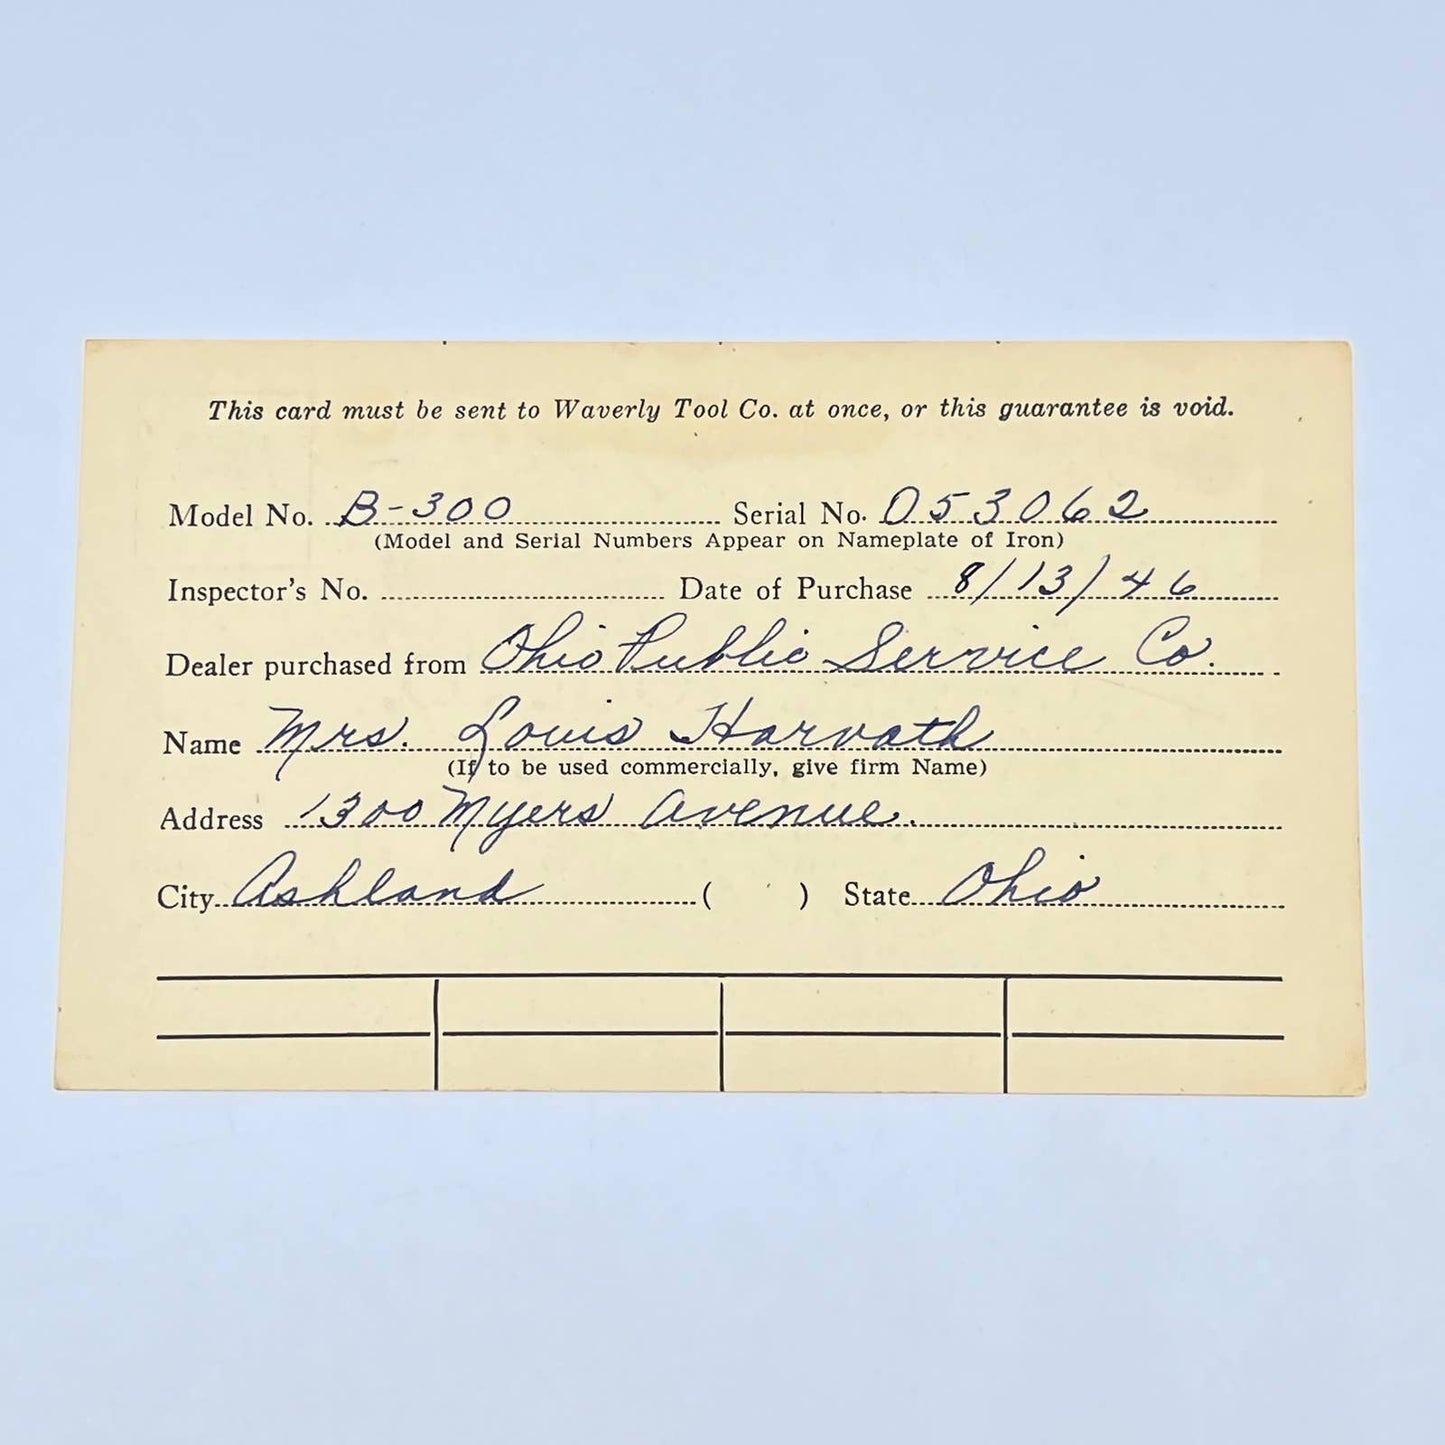 This card must be sent to Waverly Tool Co. at once, or this guarantee is void.
Model No. B-300 Serial No. 053062
(Model and Serial Numbers Appear on Nameplate of Iron)
Inspector's No. Date of Purchase 8/13/46
Dealer purchased from Ohio Public Service Co.
Name Mrs. Louis Horvath
(If to be used commercially, give firm Name)
Address 1300 Myers Avenue.
City Ashland ( ) State Ohio